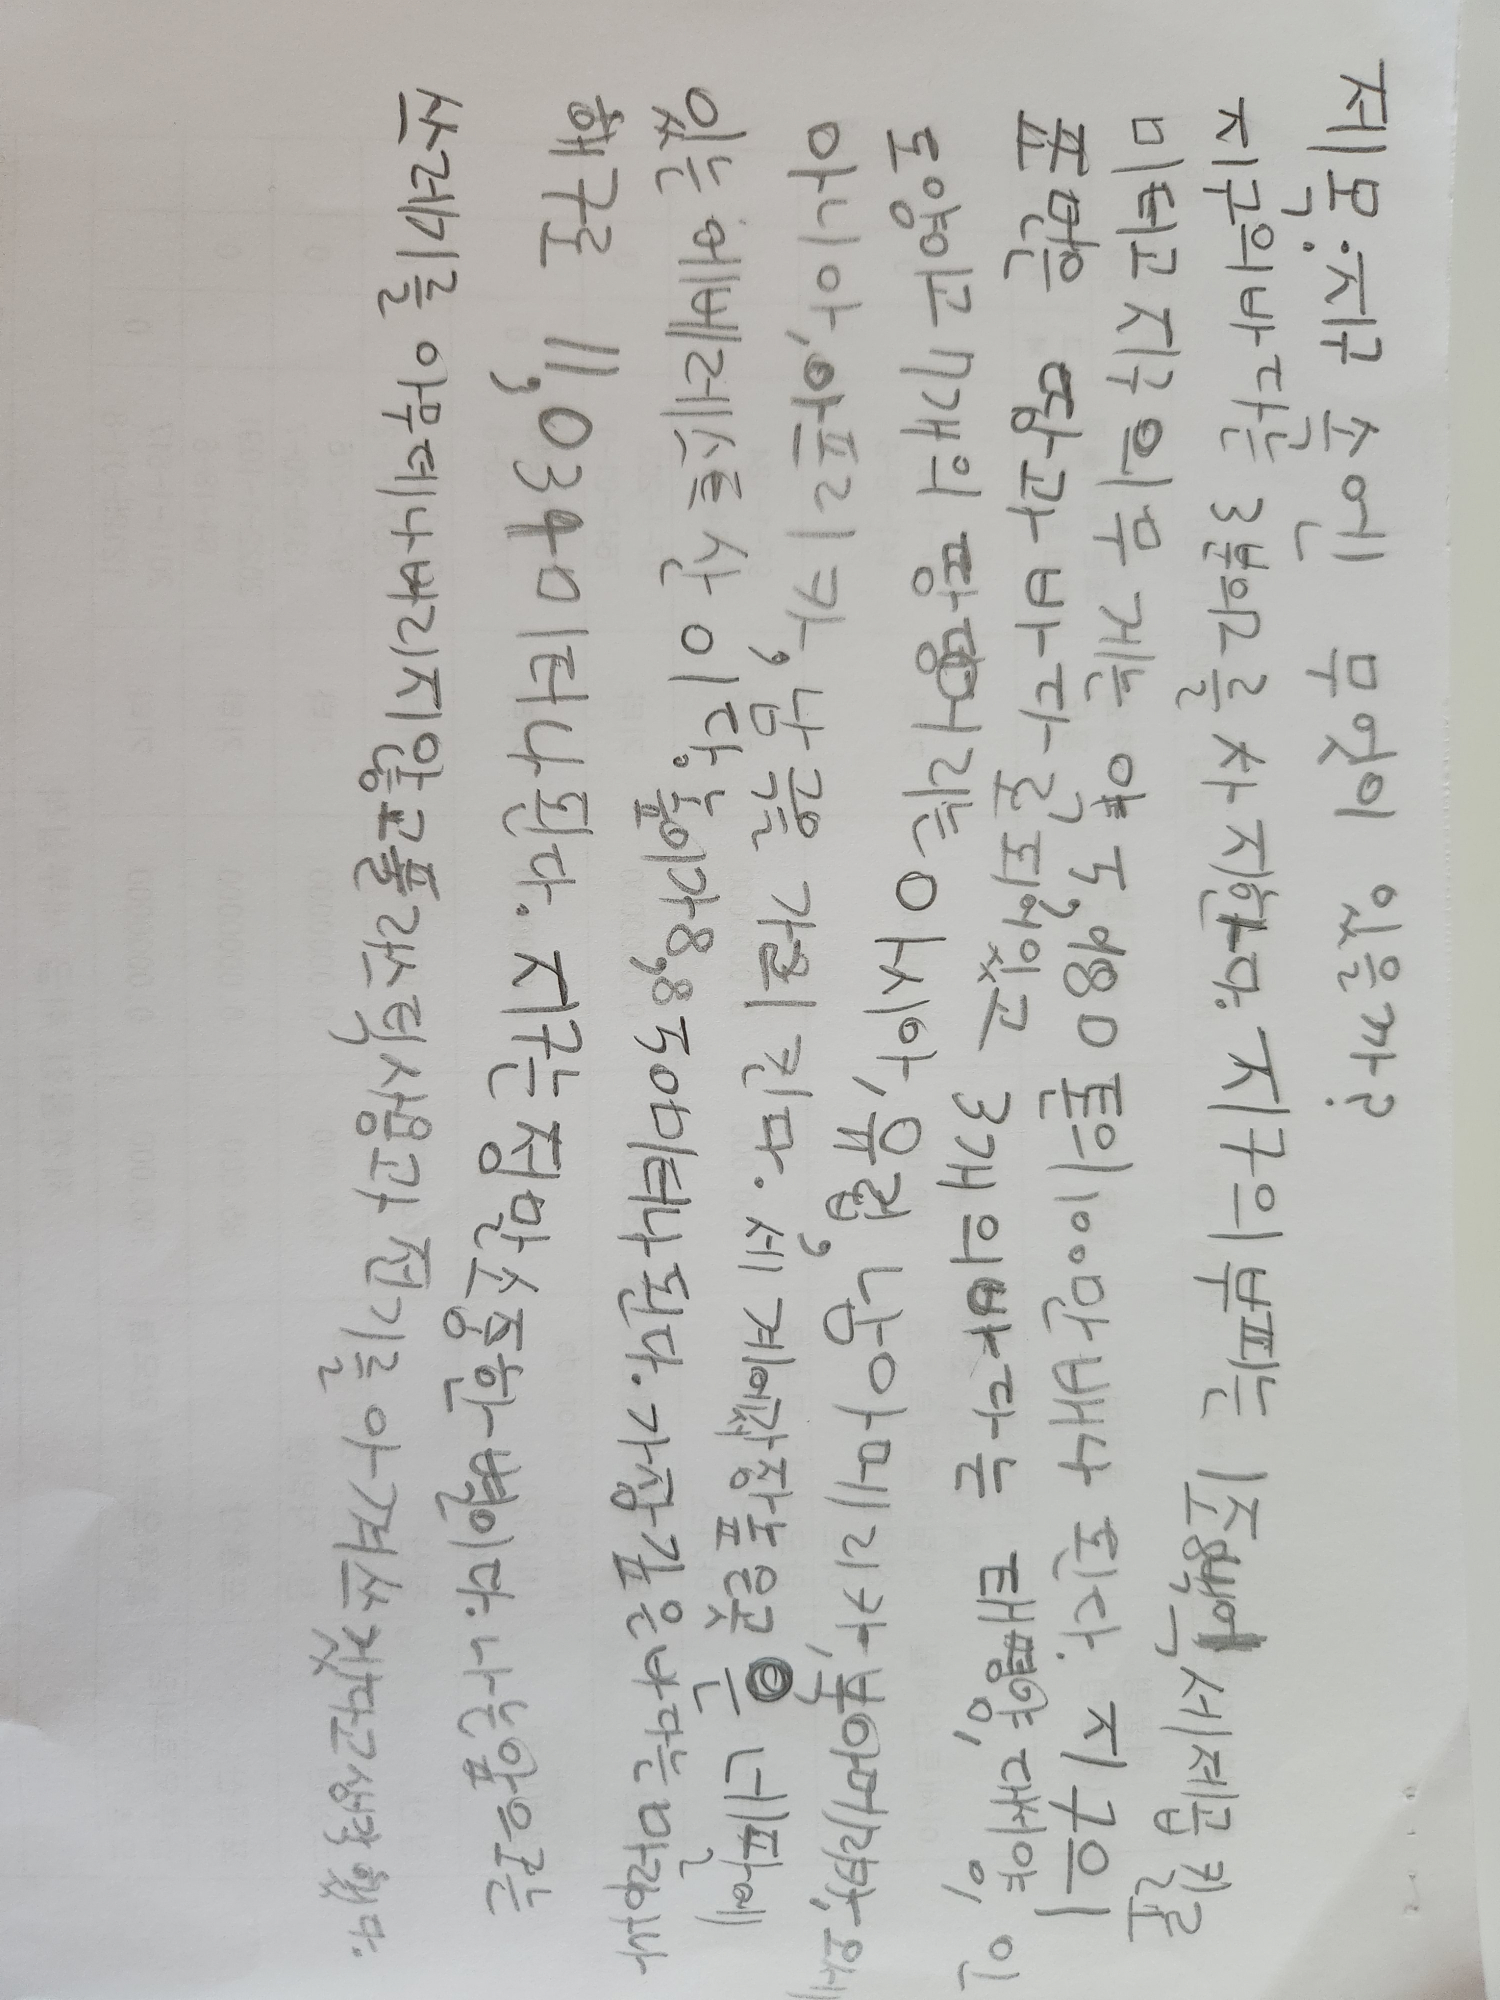 제목: 지구 속엔 무엇이 있을까?
지구의 바다는 3분의 2를 차지한다. 지구의 부피는 1조 세제곱 킬로
미터고 지구의 무게는 약 5,980 톤의 100만 배나 된다. 지구의
표면은 땅과 바다로 되어있고 3개의 바다는 태평양, 대서양, 인
도양이고 7개의 땅덩어리는 아시아, 유럽, 남아메리카, 북아메리카, 오세
아니아, 아프리카, 남극을 가르킨다. 세계에감장 높은곳은 네팔에
있는 에베레스트 산이다. 높이가 8,850미터나 된다. 가장 깊은 바다는 마리아나
해구로 11,034미터나 된다. 지구는 정말 소중한 별이다. 나는 앞으로는
쓰레기를 아무데나 버리지 않고 플래스틱 사용과 전기를 아껴 써야겠다고 생각했다.